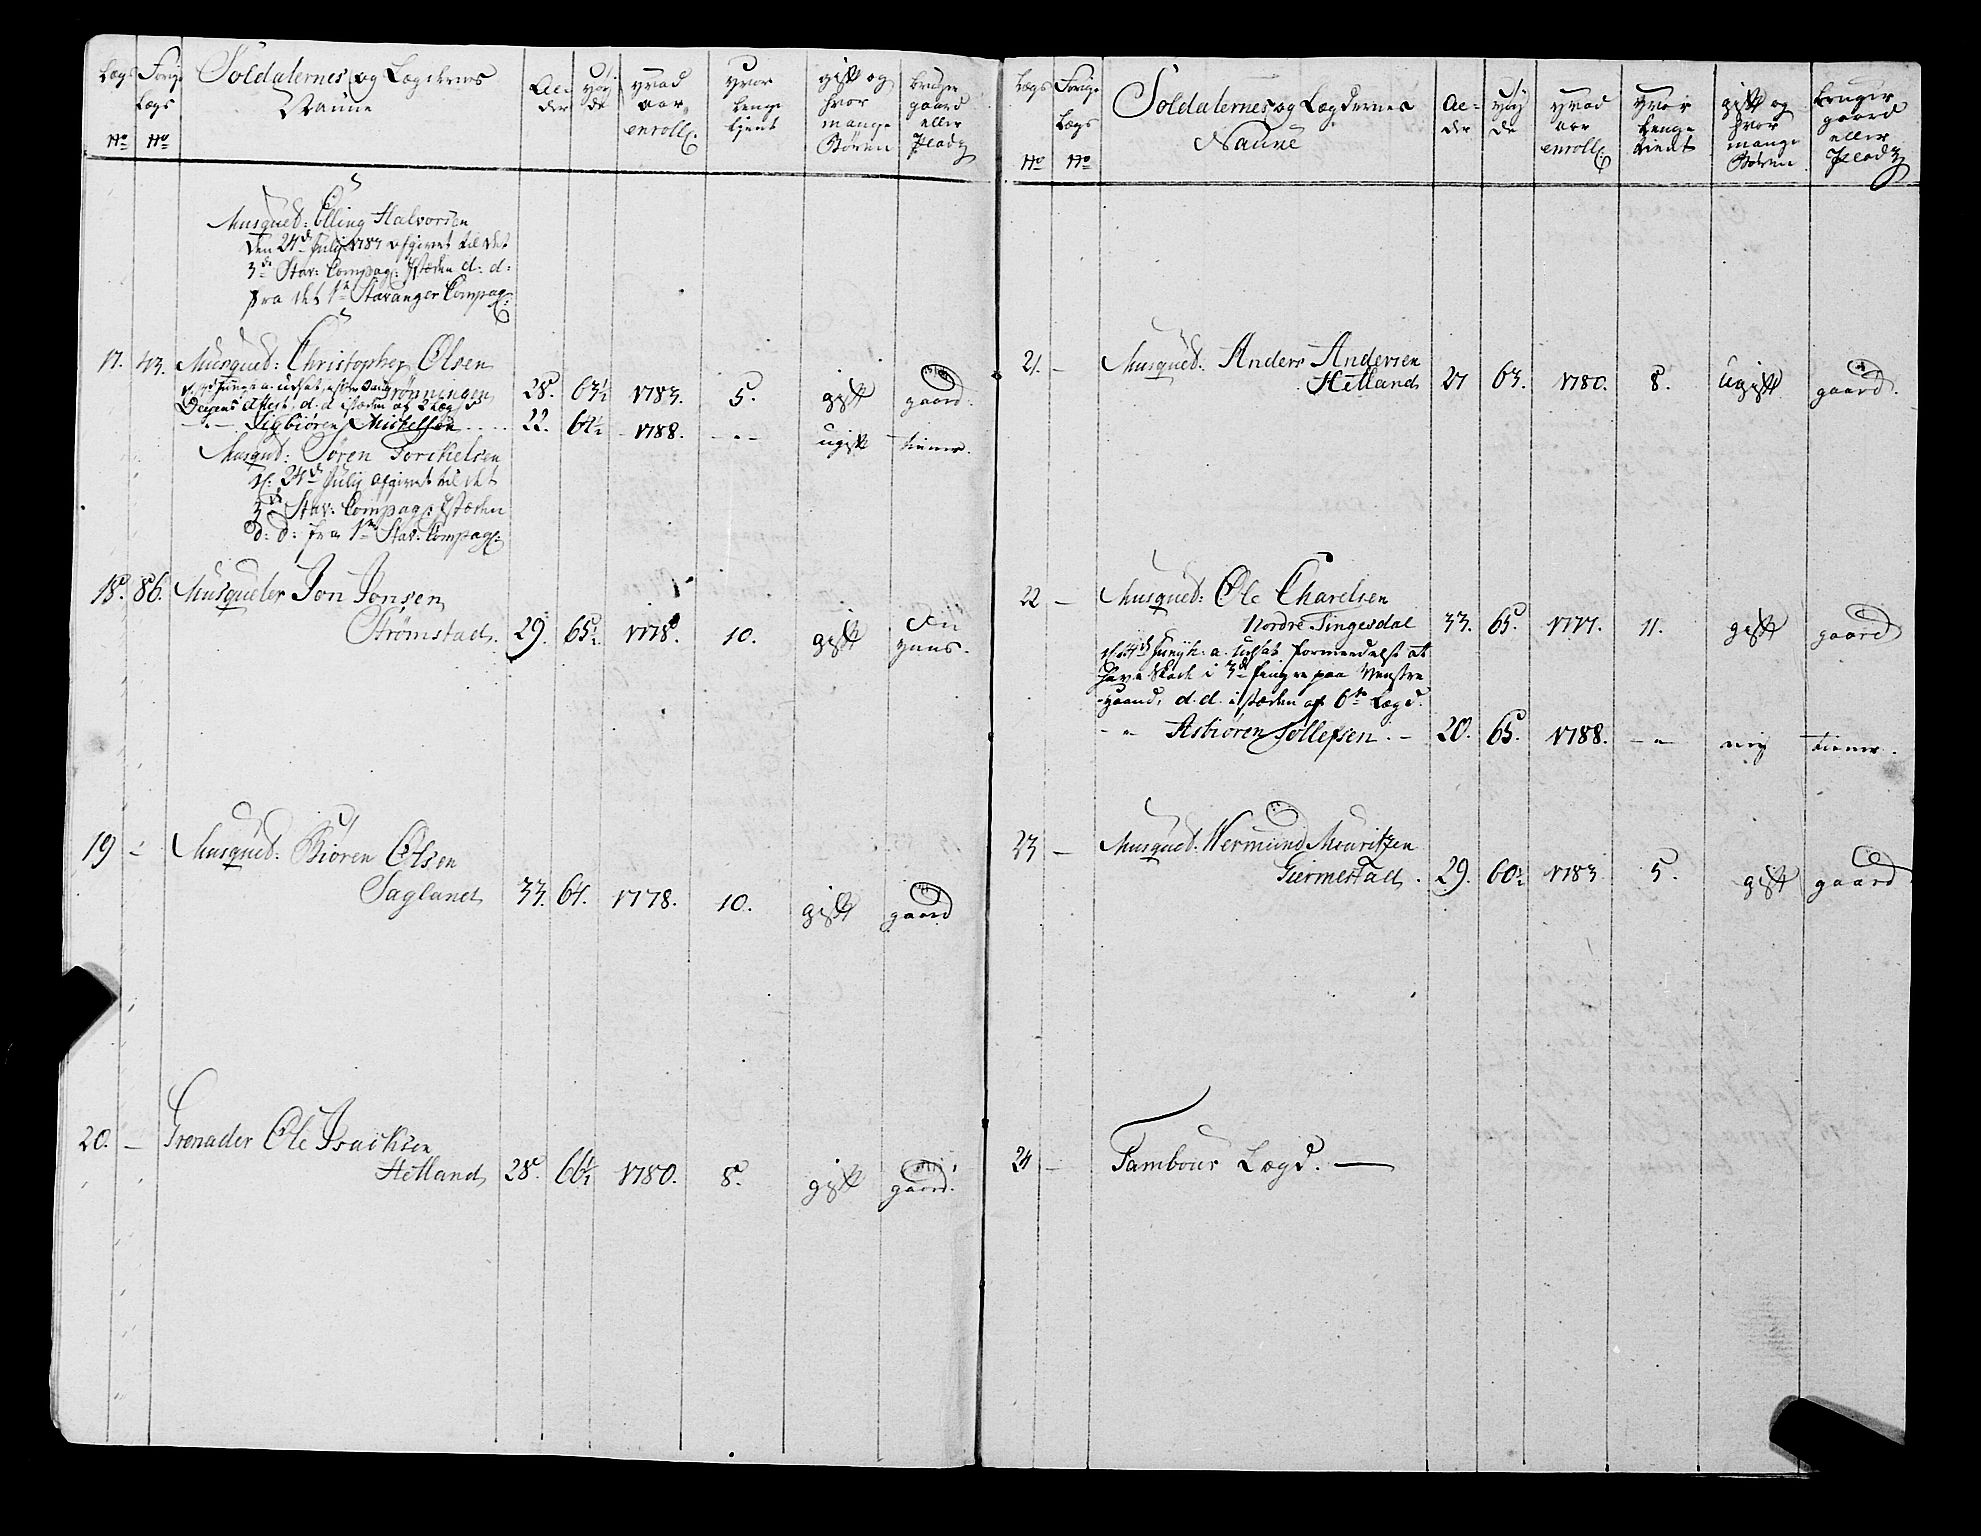 Lægs No
Forige Lægs No
Soldaternes og Lægdernes Naune
Alder
Høyde
Hvad aar enroll:
Hvor lenge tient
gift og hvor mange Børen
bruger gaard eller Pladz
Musqued: Elling Halvorsen
den 24d July 1787 afgivet til det
3de Stav: Compag: Istæden d: d:
fra det 1te Stavanger Compag:
17. 43. Musqued: Christopher Olsen
Grønningen 28. 63½ 1783. 5. gift gaard.
Degens Attest. d. d istæden af Lægd
- " - Sigbiøren Michelsen 22. 64½ 1788. - " - ugift tiener.
Musqud: Søren Torchelsen
d: 24d July afgivet til det
3de Stav: Compag: Istæden
d: d: fra 1te Stav: Compag:
18. 86. Musqueter Jon Jonsen
Strømstad. 29. 65½ 1778. 10. gift Huus.
19 - Musqued: Biøren Olsen
Sagland 33. 64. 1778. 10. gift gaard
20. - Grenader Ole Isachsen
Helland 28. 66½ 1780. 8. gift gaard.
Lægs No
Forige Lægs No
Soldaternes og Lægdernes Naune
Alder
Høyde
Hvad aar enroll:
Hvor lenge tient
gift og hvor mange Børen
bruger gaard eller Pladz
21. - Musqued. Anders Andersen
Helland 27 63. 1780. 8. ugift gaard.
22 - Musqued: Ole Charelsen
Nordre Tingesdal 33. 65. 1777. 11. gift gaard
a. udsat formedelst at
have Skade i 3de fingre paa Venstre
Haand, d. d. istæden af 6te Lægd.
- " Asbiøren Tollefsen. - 20. 65. 1788. - " - nej tiener.
23 - Musqued. Wermund Mouritzen
Giermestad. 29. 60½ 1783 5. gift gaard
24 - Tambour Lægd. -